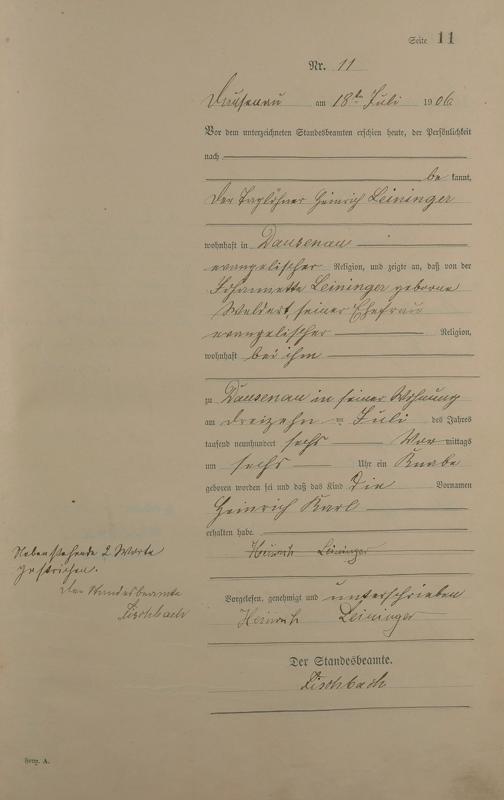 Seite 11
Nr. 11
Dausenau am 18ten Juli 1906
Vor dem unterzeichneten Standesbeamten erschien heute, der Persönlichkeit
nach
be kannt,
der Taglöhner Heinrich Leininger
wohnhaft in Dausenau
evangelischer Religion, und zeigte an, daß von der
Johannette Leininger geborne
seiner Ehefrau
evangelischer Religion,
wohnhaft bei ihm
zu Dausenau in seiner Wohnung
am dreizehn = Juli des Jahres
tausend neunhundert sechs Vor mittags
um sechs Uhr ein Knabe
geboren worden sei und daß das Kind die Vornamen
Heinrich Karl
erhalten habe.
Heinrich Leininger
Nebenstehende 2 Worte
gestrichen.
Der Standesbeamte
Fischbach
Vorgelesen, genehmigt und unterschrieben
Heinrich Leininger
Der Standesbeamte.
Fischbach
A.